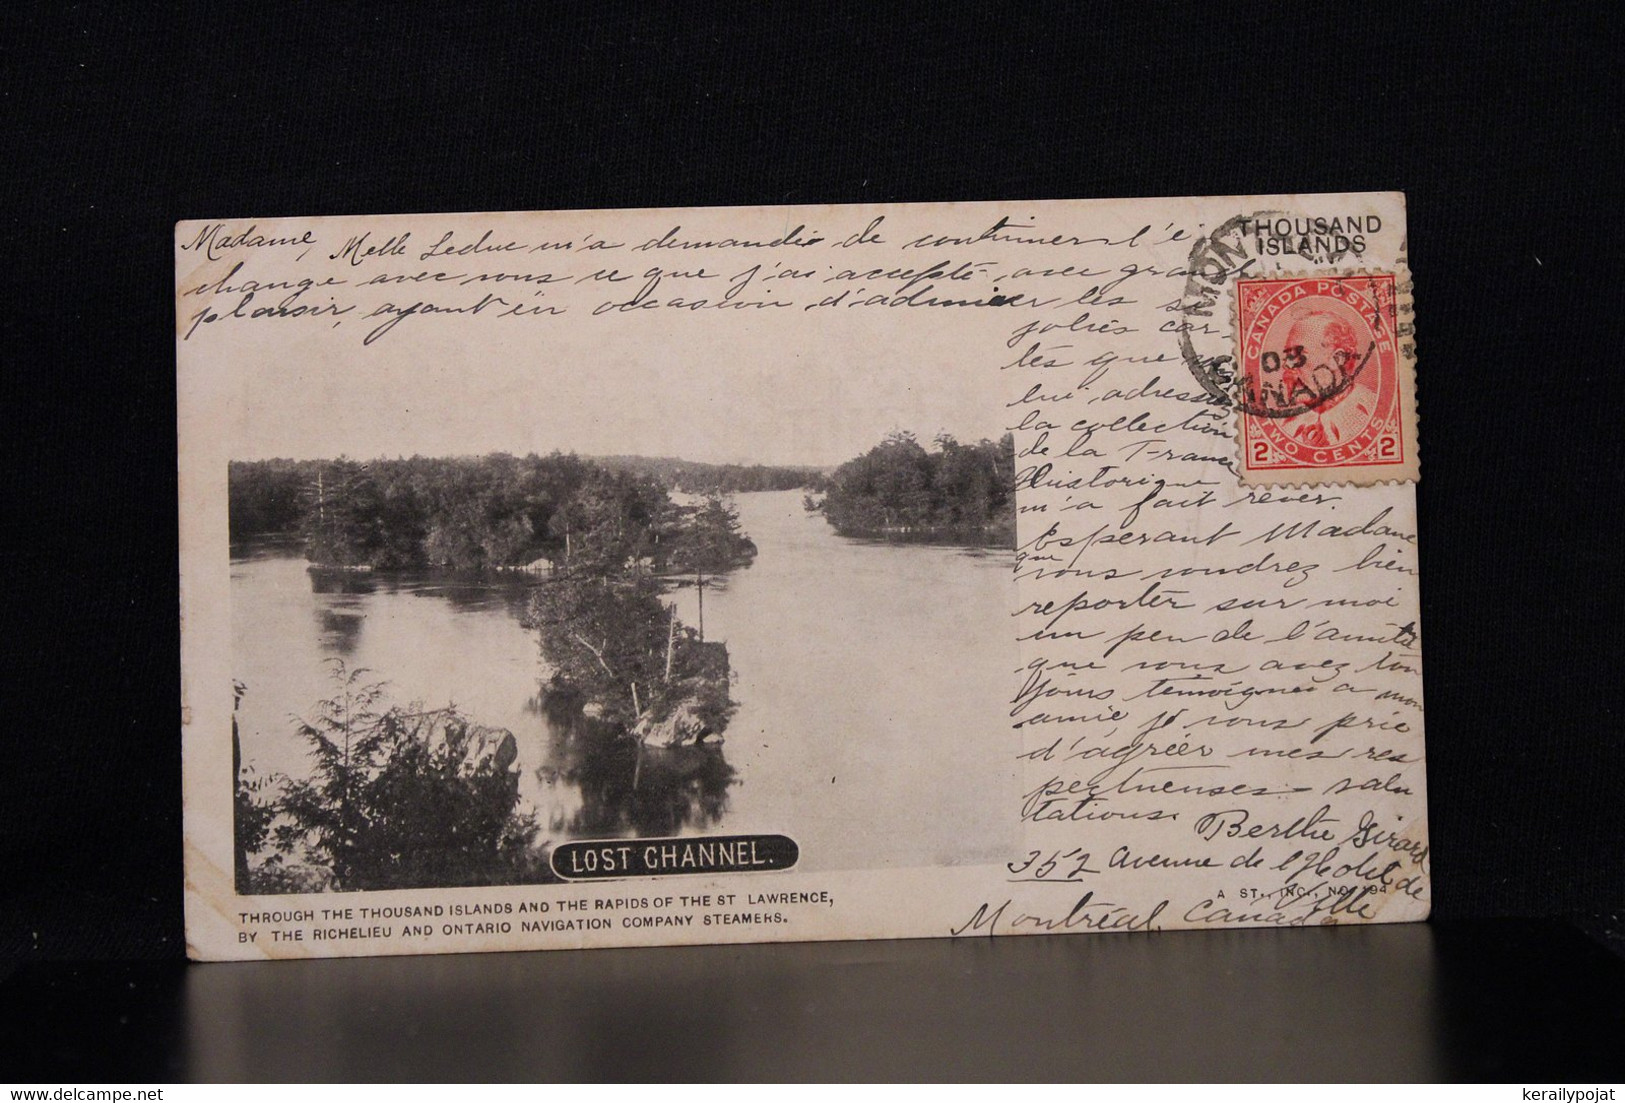 Madame, Melle Leduc m'a demandé de continuer l'é
change avec vous ce que j'ai accepté avec grand
plaisir, ayant eu occasion d'admirer les
jolies car
tes que vous
lui adressez
la collection
de la France
Historique
m'a fait rêver.
Espérant Madame
que vous voudrez bien
reporter sur moi
un peu de l'amitié
que vous avez tou
jours témoignée a mon
amie, je vous prie
d'agréer mes res
pectueuses salu
tations.
Berthe Girard
352 Avenue de l'Hotel de
Ville
Montréal, Canada
THOUSAND
ISLANDS
MONTREAL
CANADA
03
CANADA POSTAGE
2 TWO CENTS 2
LOST CHANNEL.
THROUGH THE THOUSAND ISLANDS AND THE RAPIDS OF THE ST LAWRENCE,
BY THE RICHELIEU AND ONTARIO NAVIGATION COMPANY STEAMERS.
A ST., INC., NO. 194
kerailypojat